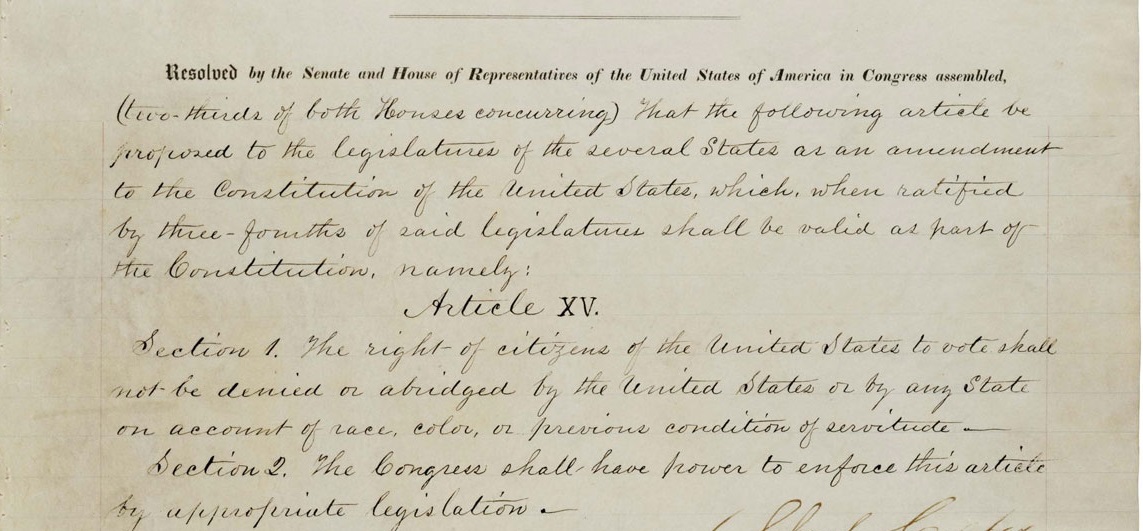 Resolved by the Senate and House of Representatives of the United States of America in Congress assembled,
(two-thirds of both Houses concurring) That the following article be
proposed to the legislatures of the several States as an amendment
to the Constitution of the United States, which, when ratified
by three-fourths of said legislatures shall be valid as part of
the Constitution, namely:
Article XV.
Section 1. The right of citizens of the United States to vote shall
not be denied or abridged by the United States or by any State
on account of race, color, or previous condition of servitude.—
Section 2. The Congress shall have power to enforce this article
by appropriate legislation.—